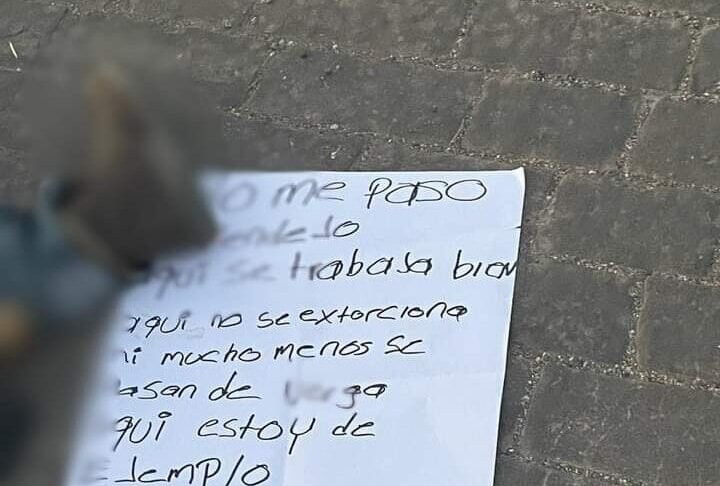 me PASO
aqui se trabaJa bien
aqui no se extorciona
ni mucho menos se
pasan de verga
aqui estoy de
EJemplo